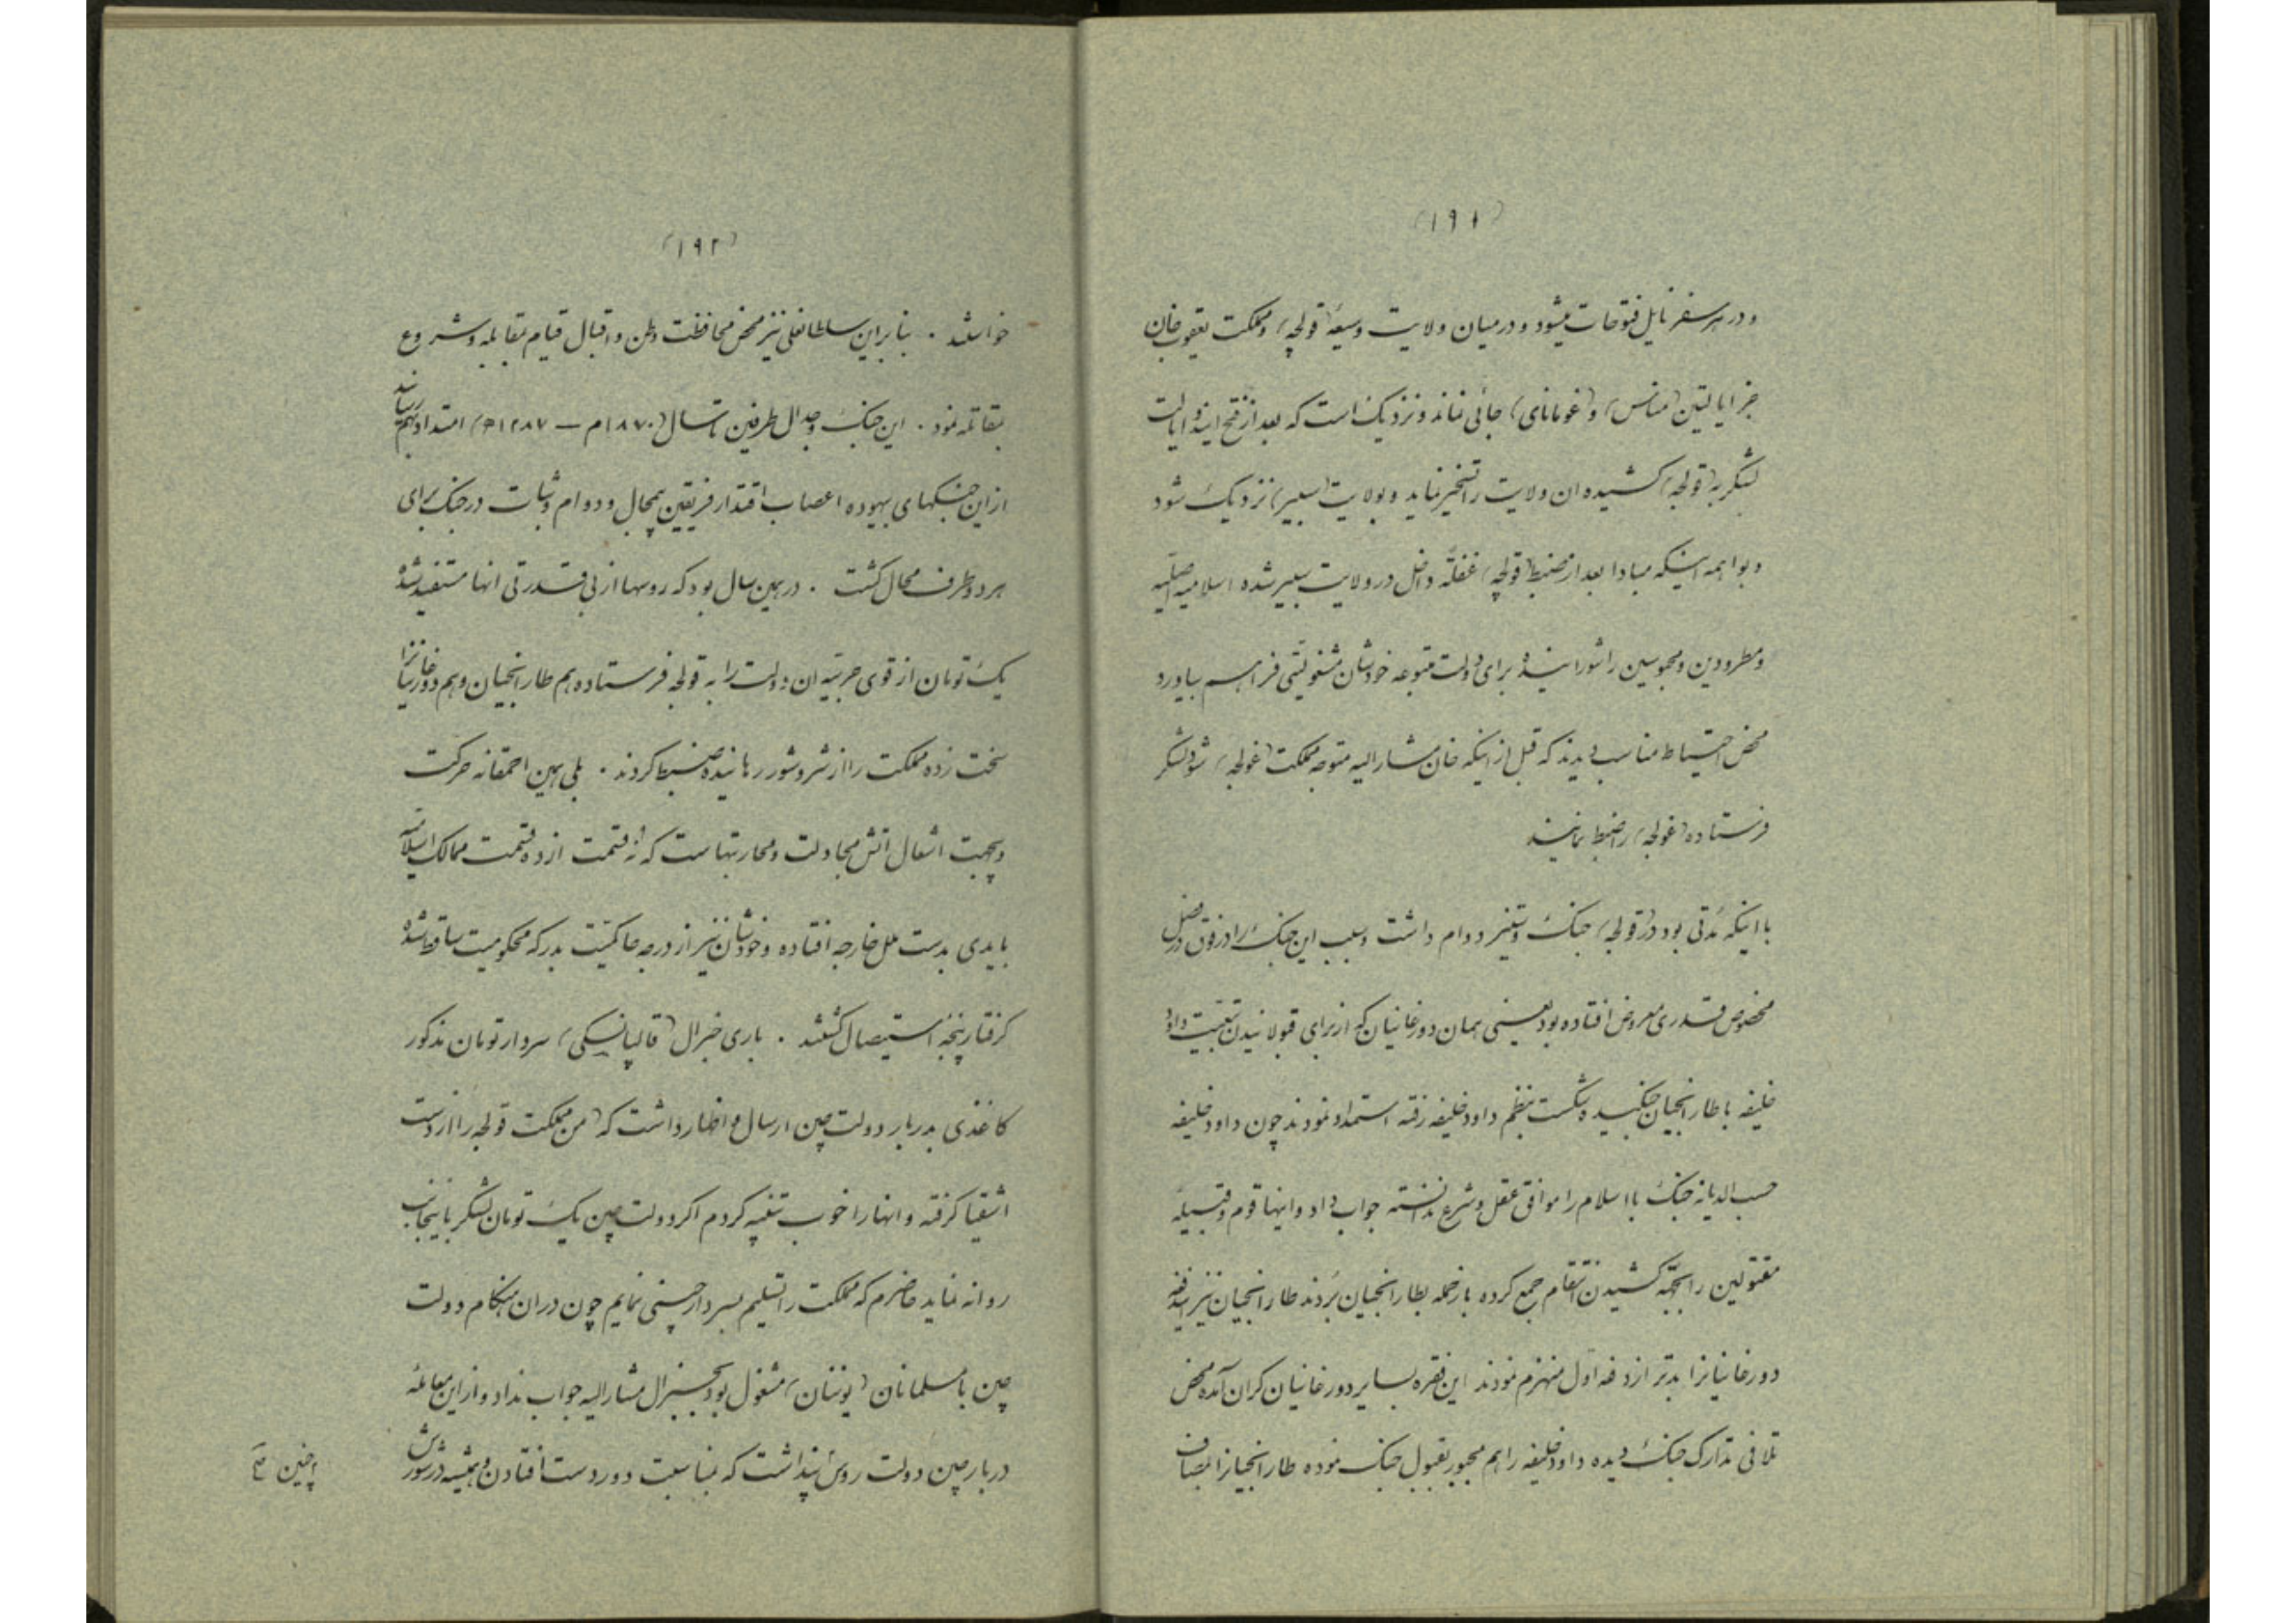 (۱۹۱)
و در هر سفر نایل فتوحات میشود و در میان ولایت وسیعهٔ (قولجه) و مملکت یعقوب خان
جز ایالتین (مناس) و (غومانای) جائی نماند و نزدیک است که بعد از فتح ایندو ایالت
لشکر به (قولجه) کشیده ان ولایت را تسخیر نماید و بولایت (سیبیر) نزدیک شود
و بواهمه اینکه مبادا بعد از ضبط (قولجه) غفلةً داخل در ولایت سیبیر شده اسلامیه اصلیه
و مطرودین و محبوسین را شورانیده برای دولت متبوعه خودشان مشغولیتی فراهم بیاورد
محض احتیاط مناسب دیدند که قبل از اینکه خان مشارالیه متوجه مملکت (غولجه) شود لشکر
فرستاده (غولجه) را ضبط نمایند
با اینکه مدتی بود در (قولجه) جنک و ستیز دوام داشت و سبب این جنک را در فوق در فصل
مخصوص قدری معروض افتاده بود یعنی همان دورغانیان که از برای قبولانیدن تبعیت داود
خلیفه با طارانجیان جنکیده شکست بنظم داود خلیفه رفته استمداد نمودند چون داود خلیفه
حسب الدیانه جنک با اسلام را موافق عقل و شرع ندانسته جواب داد و اینها قوم و قبیلهٔ
مقتولین را بجهة کشیدن انتقام جمع کرده باز حمله بطارانجیان بردند طارانجیان نیز ایندفعه
دورغانیانرا بدتر از دفعه اول منهزم نمودند این فقره بسایر دورغانیان کران آمده محض
تلافی تدارک جنک دیده داود خلیفه را هم مجبور بقبول جنک نموده طارانجیانرا بمصاف
(۱۹۲)
خواستند . بنا براین سلطانعلی نیز محض محافظت وطن و اقبال قیام بمقابله و شروع
بمقاتله نمود . این جنک و جدال طرفین تا سال (۱۸۷۰م — ۱۲۸۷ه) امتداد بهم رسانید
از این جنکهای بیهوده اعصاب اقتدار فریقین بیمجال و دوام و ثبات در جنک برای
هر دو طرف محال کشت . در همین سال بود که روسها از بی قدرتی انها مستفید شده
یک تومان از قوی حربیه ان دولت را به قولجه فرستاده هم طارانجیان و هم دورغانیانرا
سخت زده مملکت را از شر و شور رهانیده ضبط کردند . بلی همین احمقانه حرکت
و بجهت اشتعال اتش مجادلت و محاربتهاست که نه قسمت از ده قسمت ممالک اسلامیه
بایدی بدست ملل خارجه افتاده و خودشان نیز از درجه حاکمیت بدرکه محکومیت ساقط شده
کرفتار پنجهٔ استیصال کشتند . باری جنرال (قالپانسکی) سردار تومان مذکور
کاغذی بدربار دولت چین ارسال و اظهار داشت که (من مملکت قولجه را از دست
اشقیا کرفته و انها را خوب تنبیه کردم اکر دولت چین یک تومان لشکر باینجانب
روانه نماید حاضرم که مملکت را تسلیم بسردار چینی نمایم چون در ان هنکام دولت
چین با مسلمانان (یوننان) مشغول بود بجنرال مشارالیه جواب نداد و از این معامله
دربار چین دولت روس پنداشت که بمناسبت دور دست افتادن و همیشه در شورش